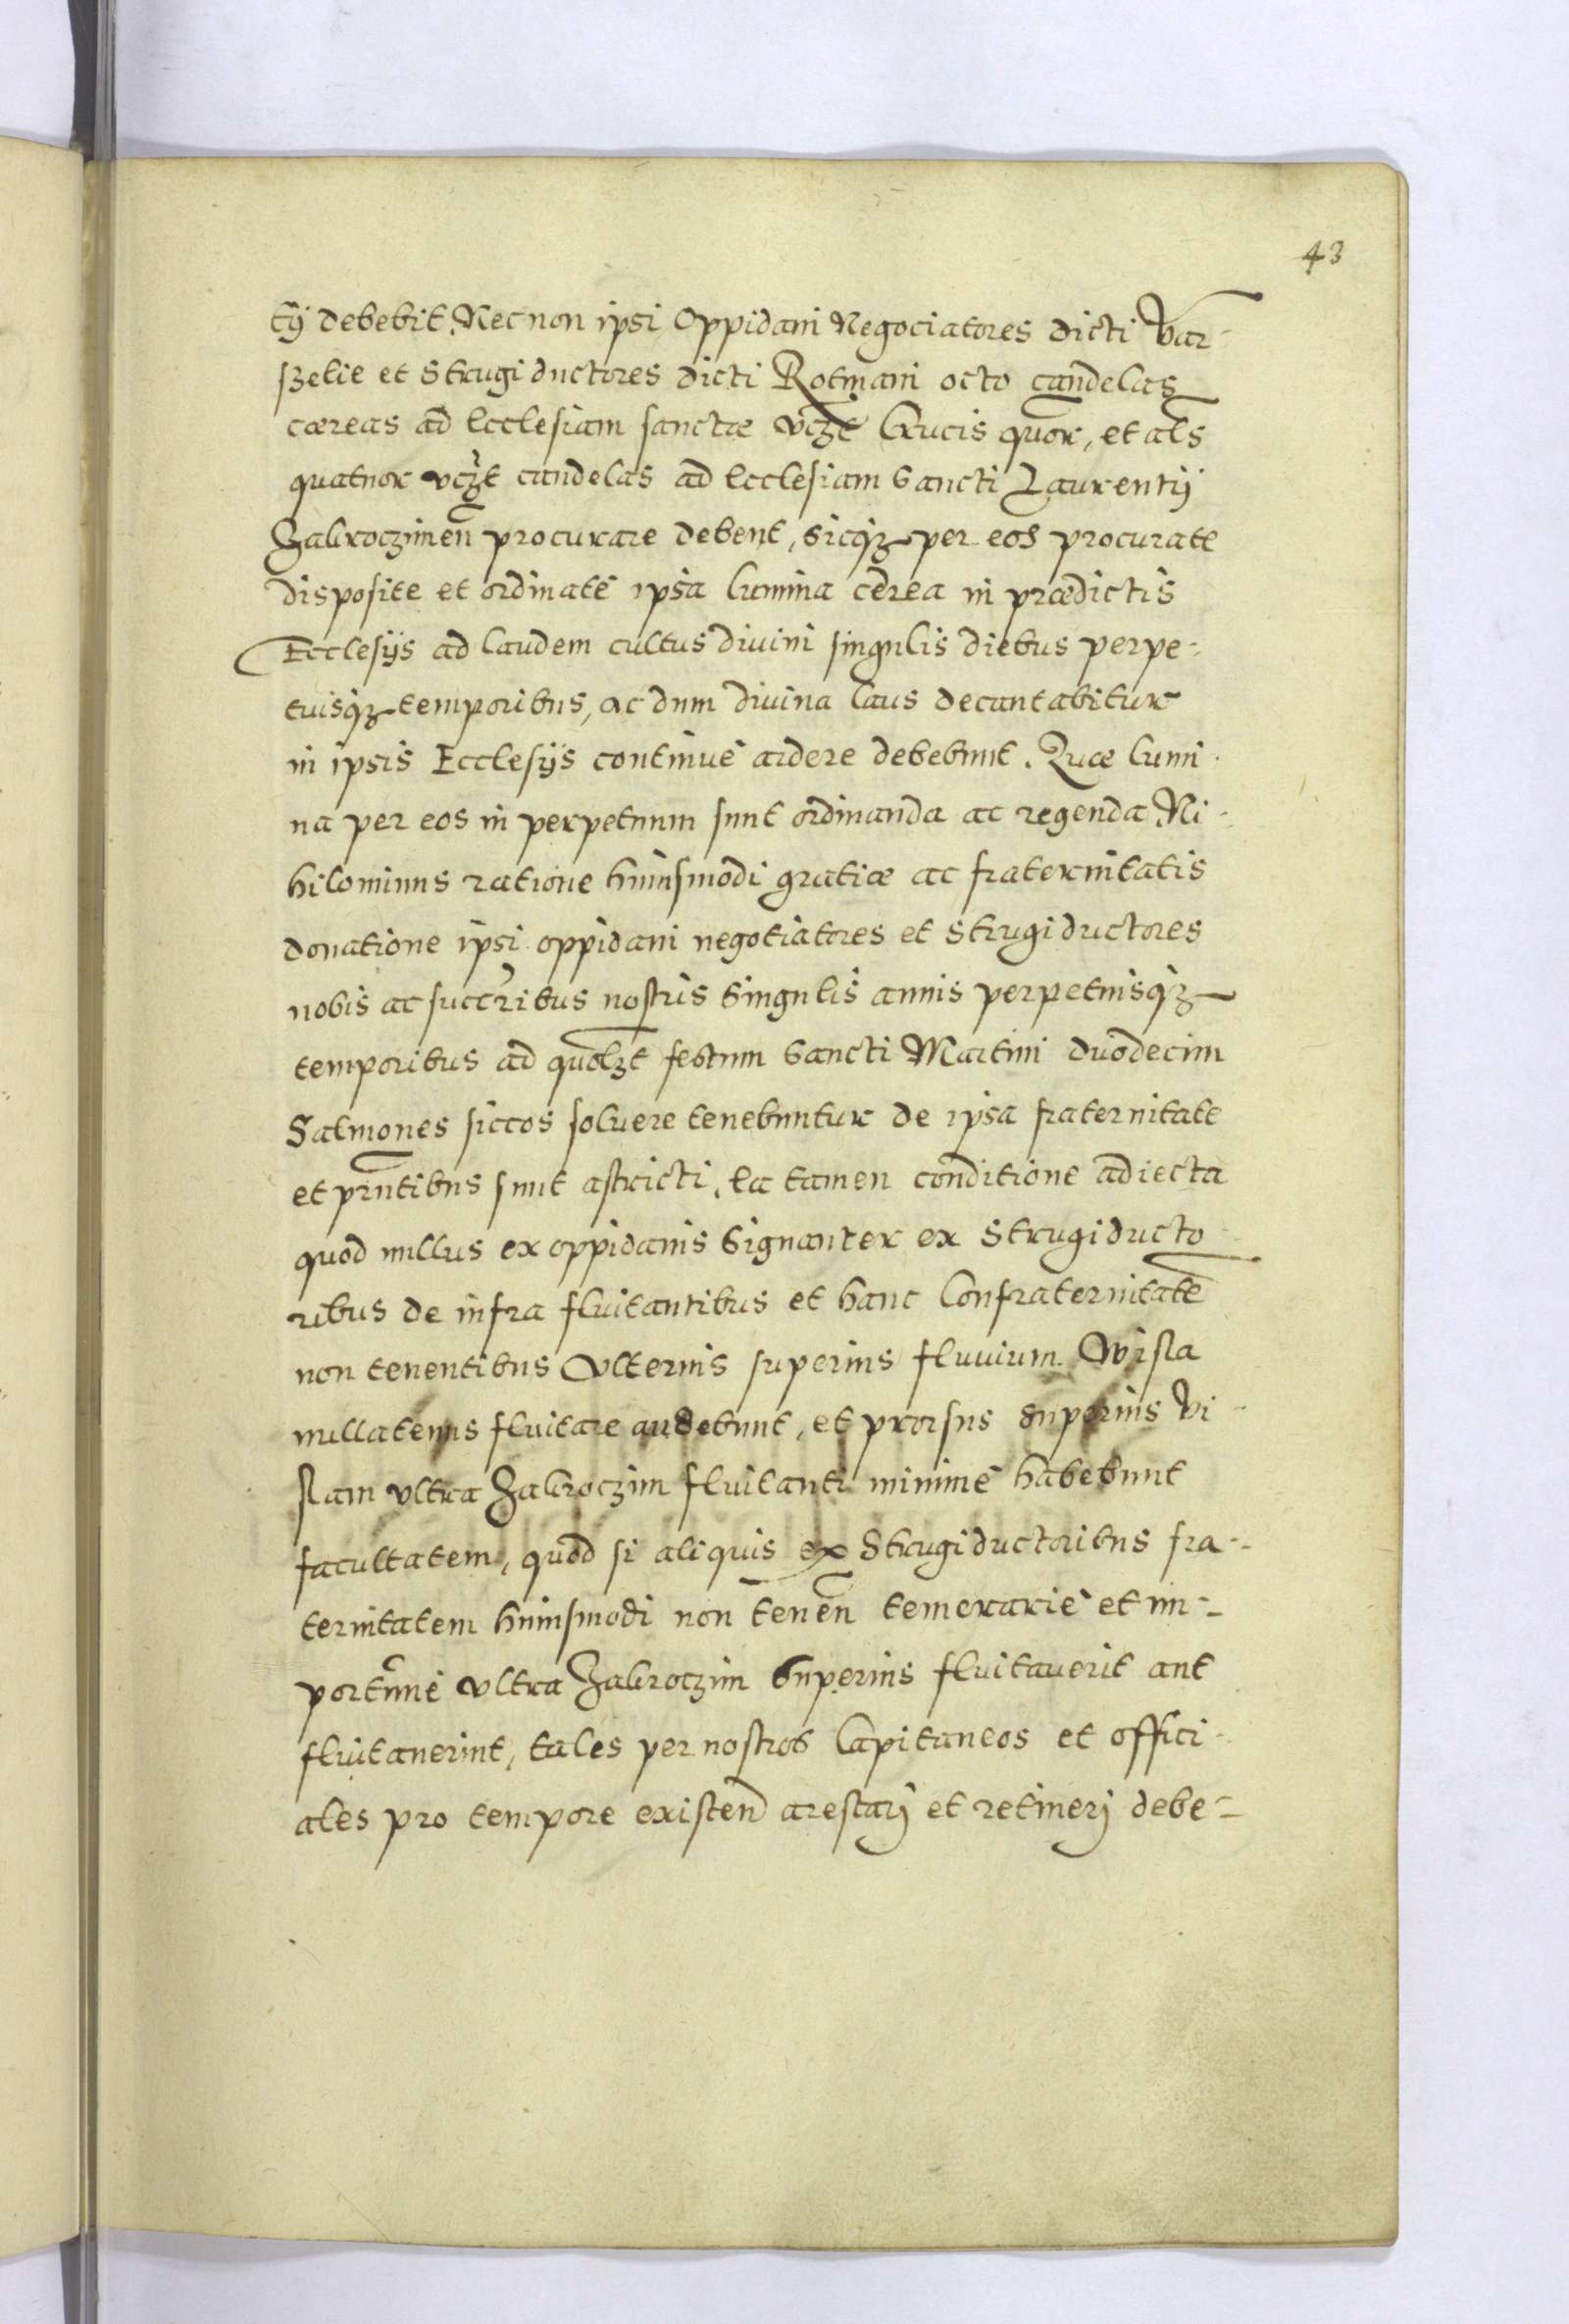 43
tij debebit. Nec non ipsi Oppidani Negociatores dicti Var-
szelie et Strugi ductores dicti Rotmani octo candelas
cæreas ad Ecclesiam sanctæ vczt Crucis quor, et als
quatuor vczt candelas ad Ecclesiam Sancti Laurentij
Zakroczimen procurare debent, sicqz per eos procurate
disposite et ordinate ipsa Lumina cerea in prædictis
Ecclesijs ad laudem cultus diuini singulis diebus perpe-
tuisqz temporibus, ac dum diuina laus decantabitur
in ipsis Ecclesijs continue ardere debebunt. Quæ lumi-
na per eos in perpetuum sunt ordinanda ac regenda Ni-
hilominus ratione huiusmodi gratiæ ac fraternitatis
donatione ipsi oppidani negotiatores et Strugi ductores
nobis ac succribus nostris Singulis annis perpetuisqz
temporibus ad quolzt festum Sancti Martini duodecim
Salmones siccos soluere tenebuntur de ipsa fraternitate
et prntibus sunt astricti, Ea tamen conditione adiecta
quod nullus ex oppidanis Signanter ex Strugiducto-
ribus de infra fluitantibus et hanc Confraternitate
non tenentibus Vlterius superius fluuium Wisla
nullatenus fluitare audebunt, et prorsus Superius Vi-
slam vltra Zakroczim fluitanti minime habebunt
facultatem, quod si aliquis ex Strugiductoribus fra-
ternitatem huiusmodi non tenen temerarie et im-
portune vltra Zakroczim Superius fluitauerit aut
fluitauerint, tales per nostros Capitaneos et offici-
ales pro tempore existen arestarj et retinerj debe-